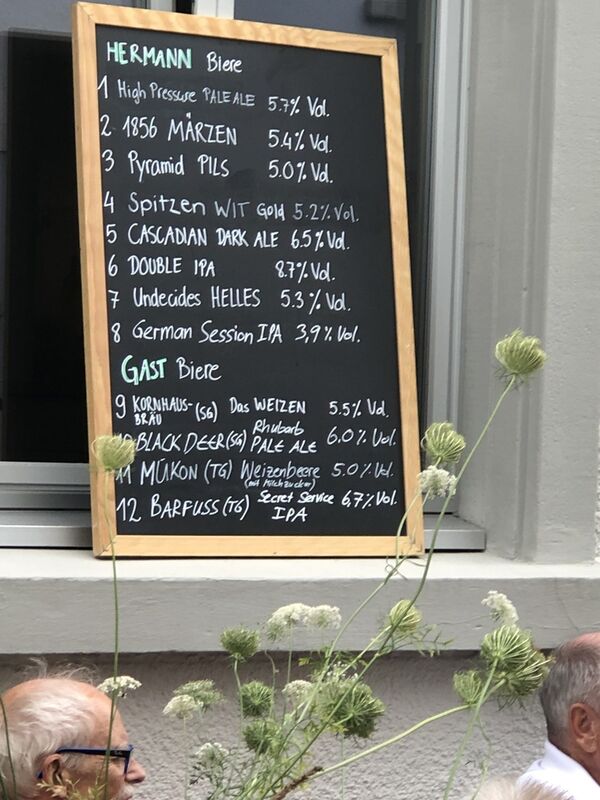 HERMANN Biere
1 High Pressure PALE ALE 5.7% Vol.
2 1856 MÄRZEN 5.4% Vol.
3 Pyramid PILS 5.0% Vol.
4 Spitzen WIT Gold 5.2% Vol.
5 CASCADIAN DARK ALE 6.5% Vol.
6 DOUBLE IPA 8.7% Vol.
7 Undecides HELLES 5.3% Vol.
8 German Session IPA 3,9% Vol.
GAST Biere
9 KORNHAUS-BRÄU (SG) Das WEIZEN 5.5% Vol.
10 BLACK DEER (SG) Rhubarb PALE ALE 6.0% Vol.
11 MÜIKON (TG) Weizenbeere (mit Milchzucker) 5.0% Vol.
12 BARFUSS (TG) Secret Service IPA 6,7% Vol.